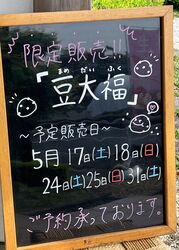 限定販売!!
「豆大福」
まめ だい ふく
～予定販売日～
5月 17日(土) 18日(日)
24日(土) 25日(日) 31日(土)
ご予約承っております。